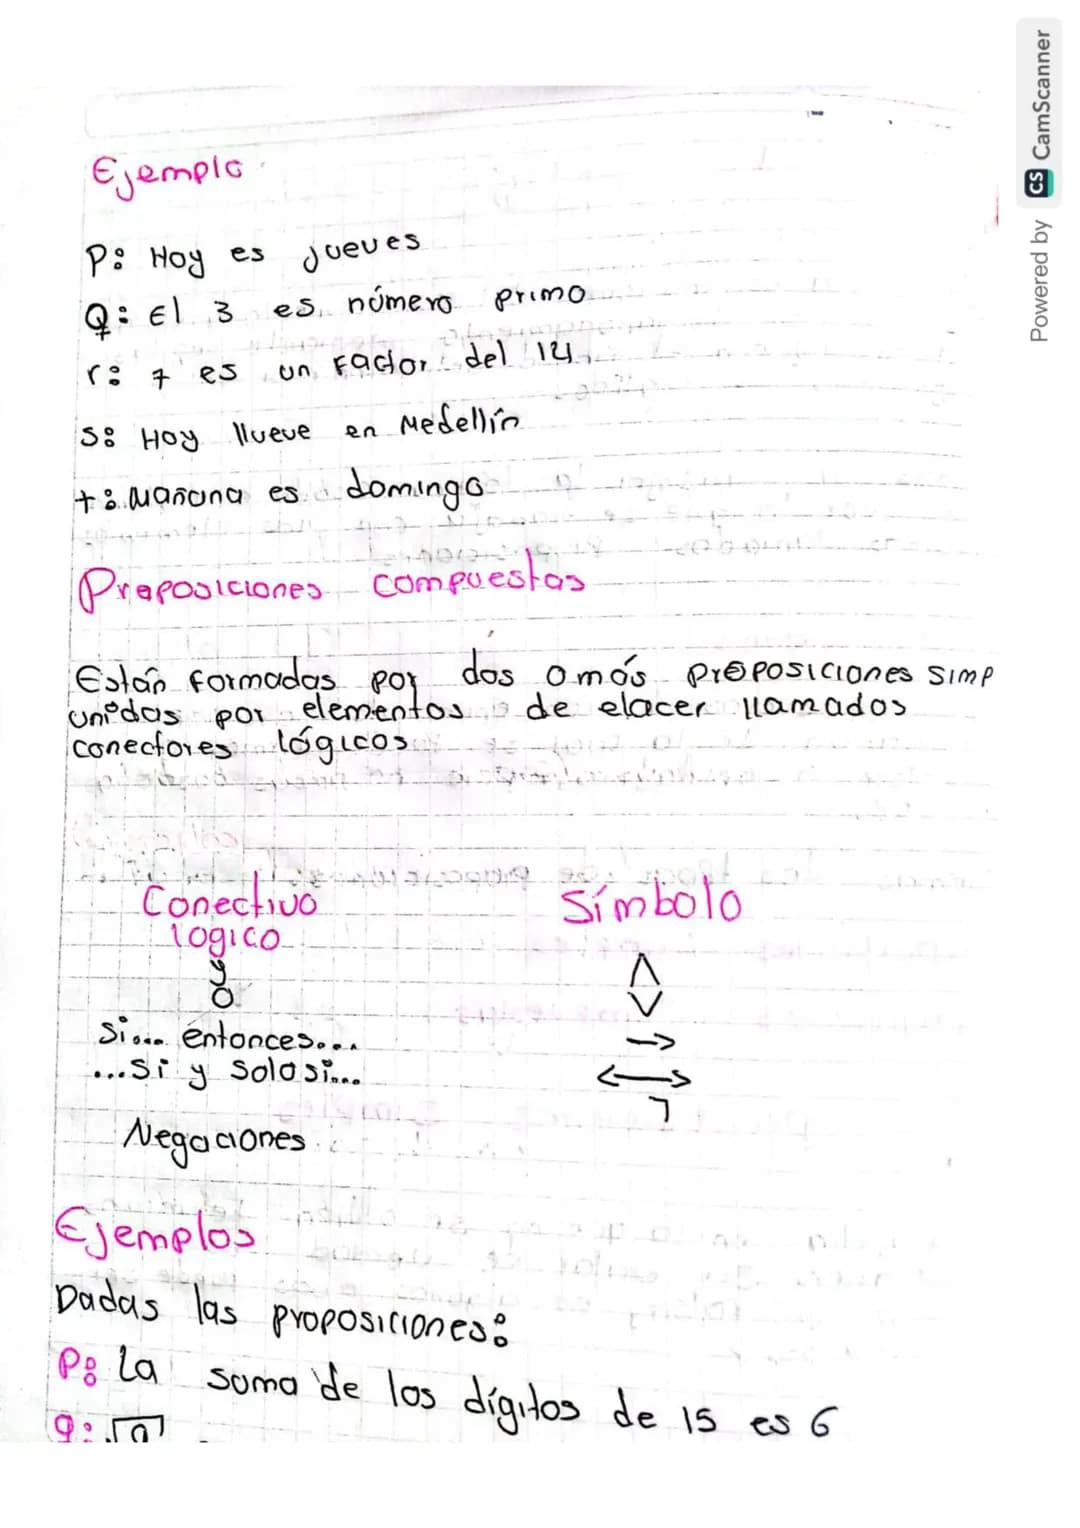 Ejemplo
P: Hoy es jueves
Q: El 3 es número primo
r: 7 es un Factor del 14
S: Hoy llueve en Medellín
t: Mañana es domingo
Proposiciones compuestas
Están formadas por dos o más proposiciones simp
unidas por elementos de elacer llamados
conectores lógicos
Conectivo Símbolo
logico
y ∧
o ∨
Si... entonces... →
...Si y Solo si... ↔
Negaciones ¬
Ejemplos
Dadas las proposiciones:
P: La suma de los dígitos de 15 es 6
q:
Powered by CS CamScanner